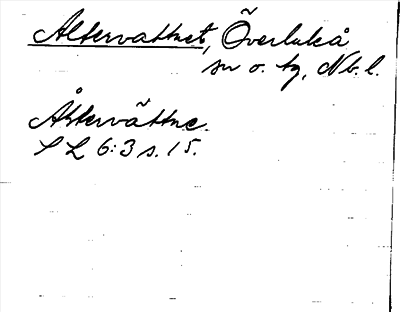 Altervattnet, Överluleå
sn o. tg, Nb. l.
Åltervättne.
S L 6:3 s. 15.